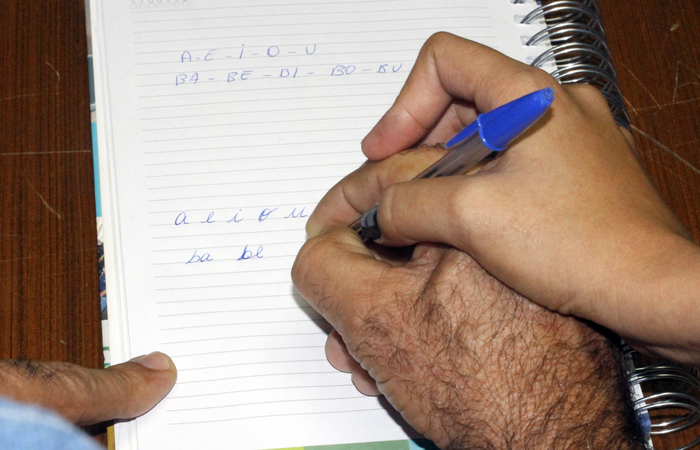 A - E - I - O - U
BA - BE - BI - BO - BU
a e i o u
ba be